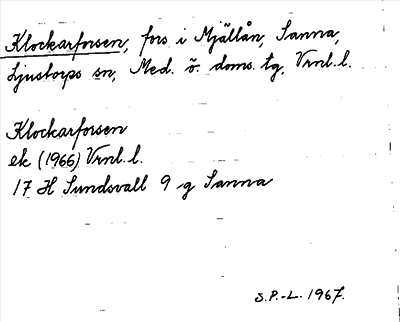 Klockarforsen, fors i Mjällån, Sanna,
Ljustorps sn, Med. ö. doms. tg, Vrnl. l.
Klockarforsen
ek (1966) Vrnl. l.
17 H Sundsvall 9 g Sanna
S.P.-L. 1967.